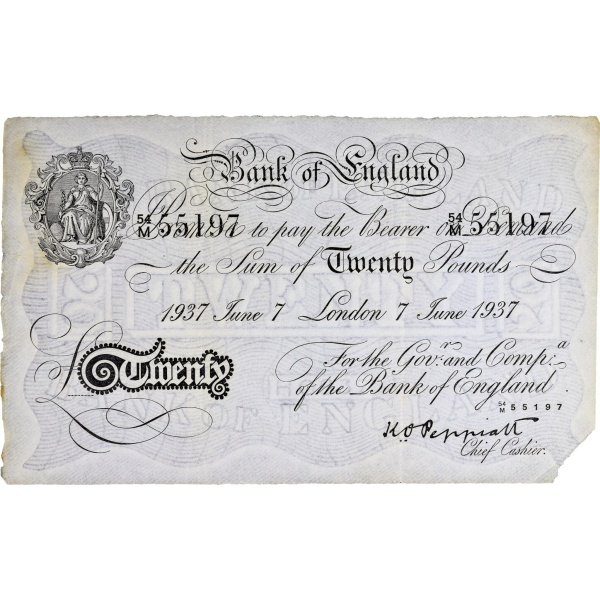 Bank of England
54/M 55197 54/M 55197
Promise to pay the Bearer on Demand
the Sum of Twenty Pounds
1937 June 7 London 7 June 1937
For the Govr. and Compa.
of the Bank of England
54/M 55197
£ Twenty
K O Peppiatt
Chief Cashier.